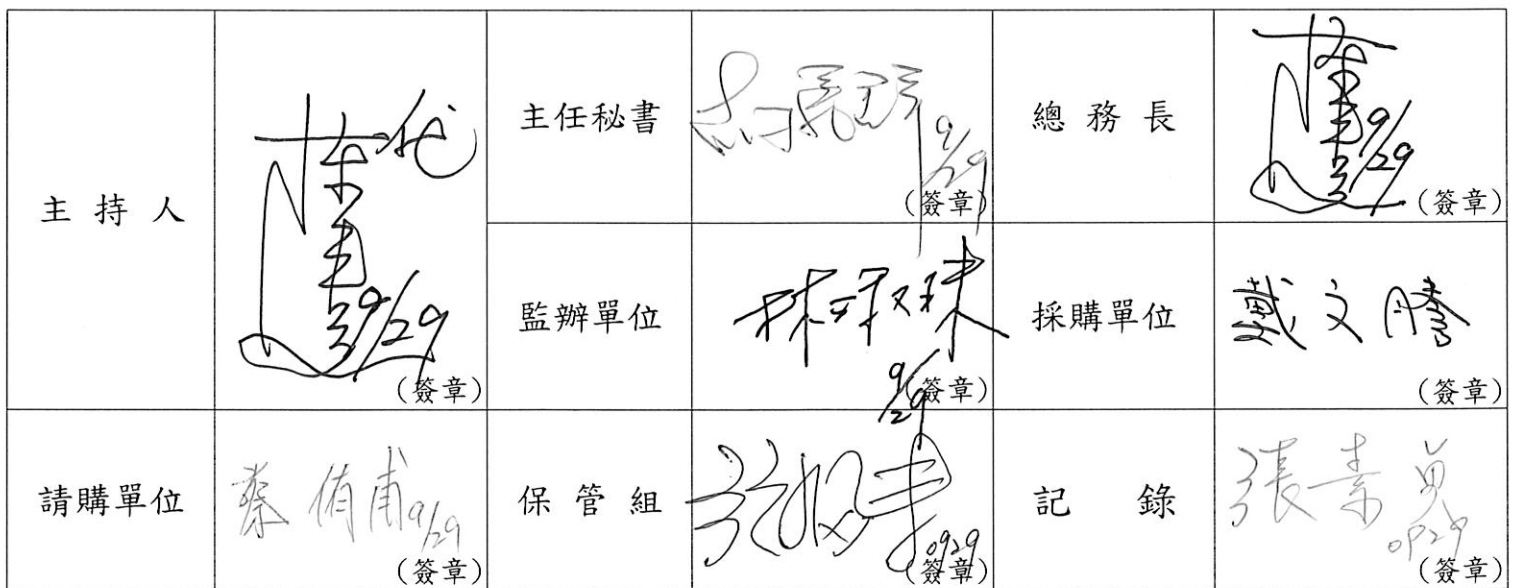 主持人
代
9/29
(簽章)
主任秘書
9/29
(簽章)
總務長
9/29
(簽章)
監辦單位
9/29
(簽章)
採購單位
戴文騰
(簽章)
請購單位
蔡侑甫 9/29
(簽章)
保管組
0929
(簽章)
記錄
張素貞
0929
(簽章)